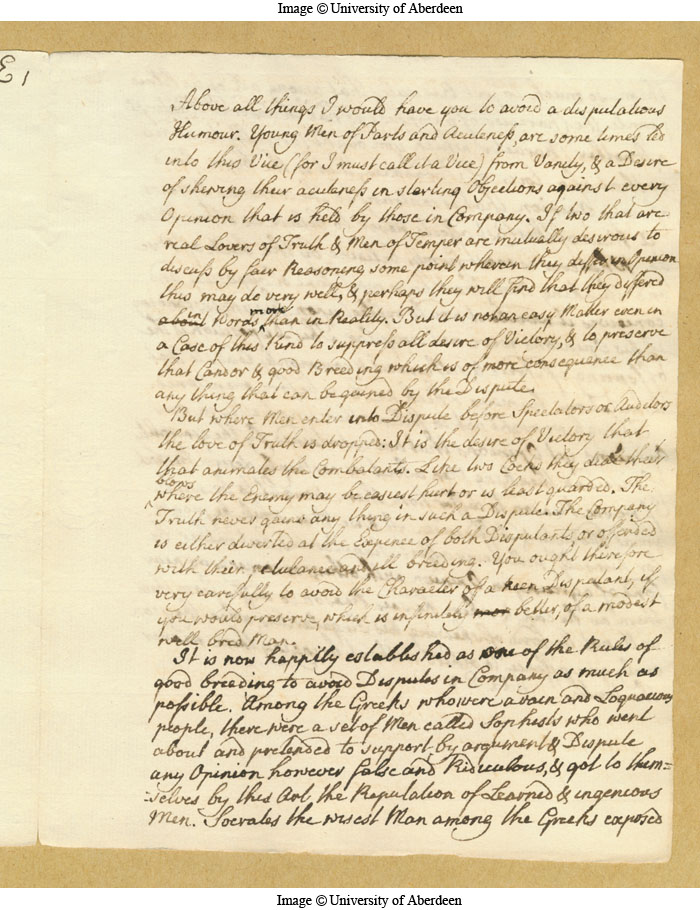 Image © University of Aberdeen
E 1
Above all things I would have you to avoid a disputatious
Humour. Young Men of Parts and Acuteness, are some times led
into this Vice (for I must call it a Vice) from Vanity, & a Desire
of shewing their acuteness in starting Objections against every
Opinion that is held by those in Company. If two that are
real Lovers of Truth & Men of Temper are mutually desirous to
discuss by fair Reasoning some point wherein they differ in Opinion
this may do very well, & perhaps they will find that they differed
about in Words more than in Reality. But it is not an easy Matter even in
a Case of this Kind to suppress all desire of Victory, & to preserve
that Candor & good Breeding which is of more consequence than
any thing that can be gained by the Dispute.
But where Men enter into Dispute before Spectators or Auditors
the love of Truth is dropped: It is the desire of Victory that
that animates the Combatants. Like two Cocks they deal their
blows where the Enemy may be easiest hurt or is least guarded. The
Truth never gains any thing in such a Dispute. The Company
is either diverted at the Expence of both Disputants, or offended
with their and ill breeding. You ought therefore
very carefully to avoid the Character of a keen Disputant, if
you would preserve, which is infinitely mor better, of a modest
well bred Man.
It is now happily established as one of the Rules of
good breeding to avoid Disputes in Company as much as
possible. Among the Greeks who were a vain and Loquacious
people, there were a set of Men called Sophists who went
about and pretended to support by argument & Dispute
any Opinion however false and Ridiculous, & got to them=
-selves by this Art the Reputation of Learned & ingenious
Men. Socrates the wisest Man among the Greeks exposed
Image © University of Aberdeen